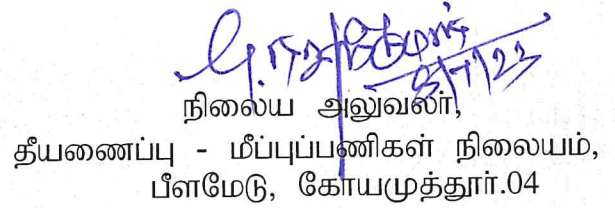 8/7/23
நிலைய அலுவலர்,
தீயணைப்பு - மீப்புப்பணிகள் நிலையம்,
பீளமேடு, கோயமுத்தூர்.04